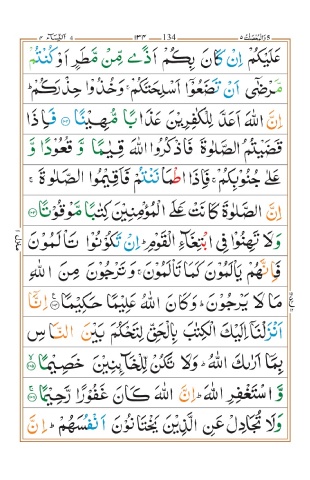 النسآء ٤ ١٣٤ 134 والمحصنٰت ٥
عَلَيْكُمْ اِنْ كَانَ بِكُمْ اَذًى مِّنْ مَّطَرٍ اَوْ كُنْتُمْ
مَّرْضٰٓى اَنْ تَضَعُوْٓا اَسْلِحَتَكُمْ ۚ وَخُذُوْا حِذْرَكُمْ ؕ
اِنَّ اللّٰهَ اَعَدَّ لِلْكٰفِرِيْنَ عَذَابًا مُّهِيْنًا ﴿۱۰۲﴾ فَاِذَا
قَضَيْتُمُ الصَّلٰوةَ فَاذْكُرُوا اللّٰهَ قِيٰمًا وَّ قُعُوْدًا وَّ
عَلٰى جُنُوْبِكُمْ ۚ فَاِذَا اطْمَاْنَنْتُمْ فَاَقِيْمُوا الصَّلٰوةَ ۚ
اِنَّ الصَّلٰوةَ كَانَتْ عَلَى الْمُؤْمِنِيْنَ كِتٰبًا مَّوْقُوْتًا ﴿۱۰۳﴾
وَلَا تَهِنُوْا فِى ابْتِغَآءِ الْقَوْمِ ؕ اِنْ تَكُوْنُوْا تَاْلَمُوْنَ
فَاِنَّهُمْ يَاْلَمُوْنَ كَمَا تَاْلَمُوْنَ ۚ وَتَرْجُوْنَ مِنَ اللّٰهِ
مَا لَا يَرْجُوْنَ ؕ وَكَانَ اللّٰهُ عَلِيْمًا حَكِيْمًا ﴿۱۰۴﴾ اِنَّآ
اَنْزَلْنَآ اِلَيْكَ الْكِتٰبَ بِالْحَقِّ لِتَحْكُمَ بَيْنَ النَّاسِ
بِمَآ اَرٰىكَ اللّٰهُ ؕ وَلَا تَكُنْ لِّلْخَآئِنِيْنَ خَصِيْمًا ﴿۱۰۵﴾
وَّ اسْتَغْفِرِ اللّٰهَ ؕ اِنَّ اللّٰهَ كَانَ غَفُوْرًا رَّحِيْمًا ﴿۱۰۶﴾
وَلَا تُجَادِلْ عَنِ الَّذِيْنَ يَخْتَانُوْنَ اَنْفُسَهُمْ ؕ اِنَّ
منزل ١